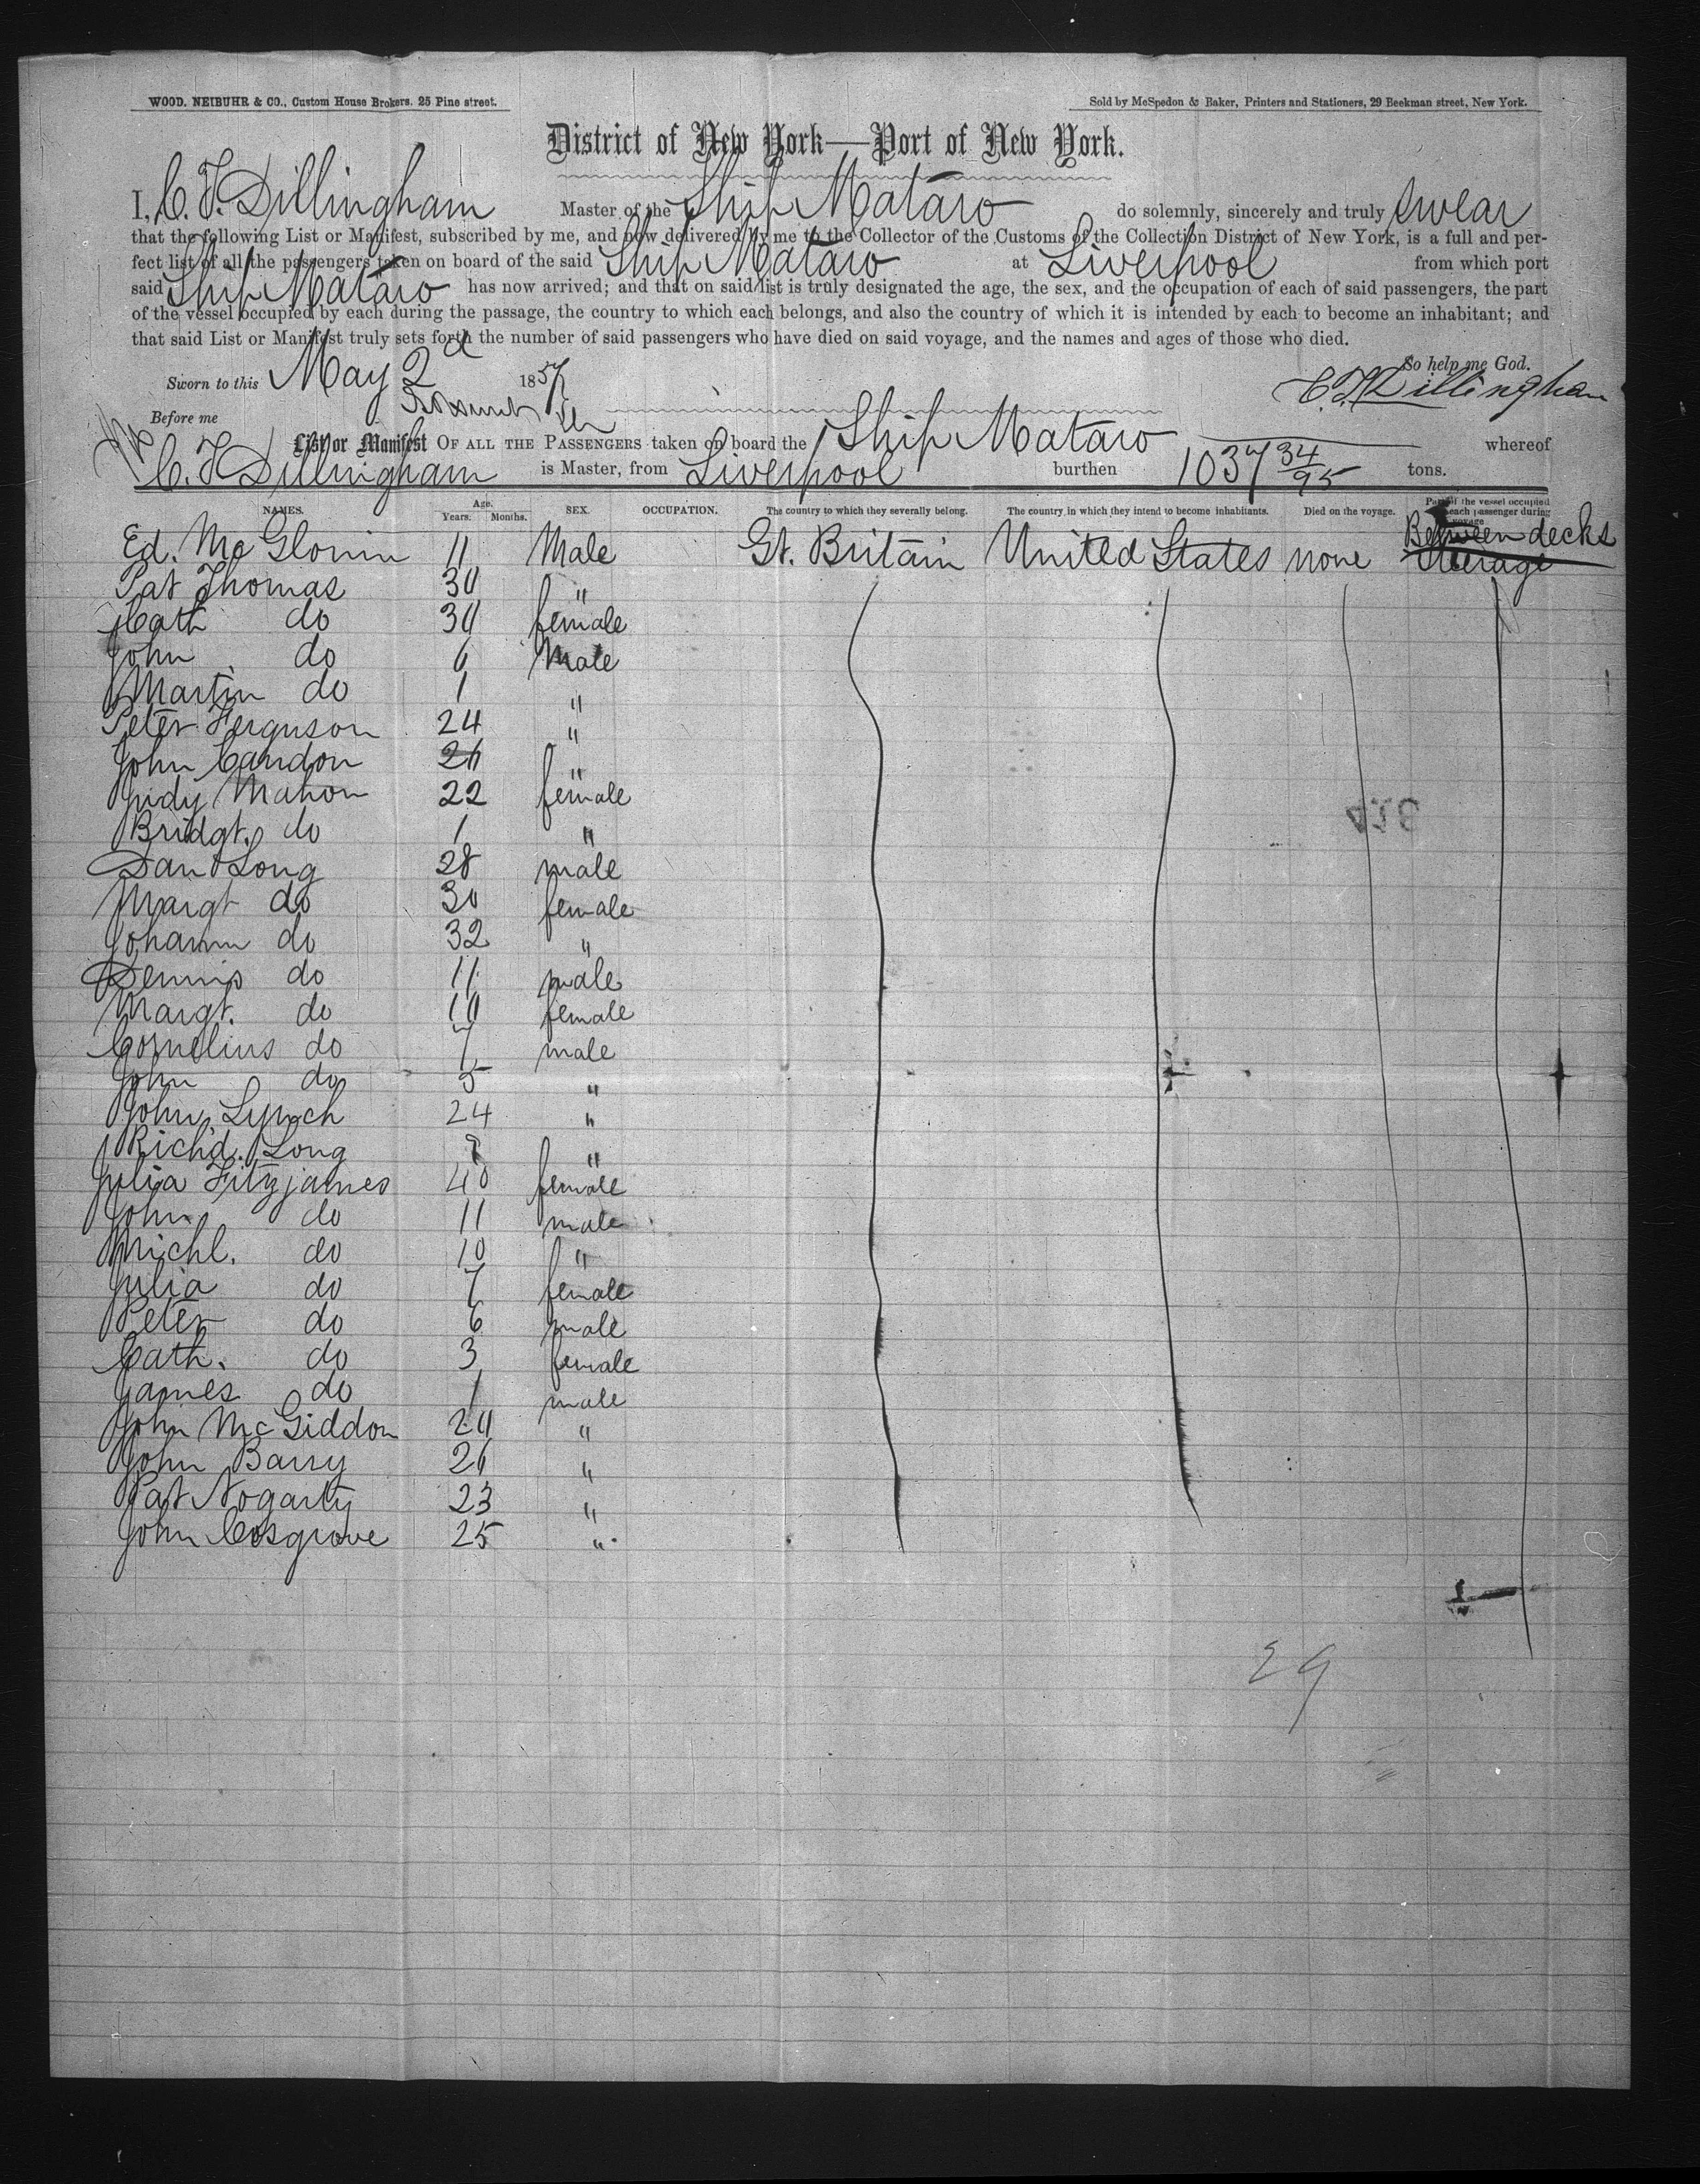 WOOD, NEIBUHR & CO., Custom House Brokers. 25 Pine street.
Sold by McSpedon & Baker, Printers and Stationers, 29 Beekman street, New York.
District of New York—Port of New York.
I, C. T. Dillingham Master of the Ship Mataro do solemnly, sincerely and truly swear
that the following List or Manifest, subscribed by me, and now delivered by me to the Collector of the Customs of the Collection District of New York, is a full and per-
fect list of all the passengers taken on board of the said Ship Mataro at Liverpool from which port
said Ship Mataro has now arrived; and that on said list is truly designated the age, the sex, and the occupation of each of said passengers, the part
of the vessel occupied by each during the passage, the country to which each belongs, and also the country of which it is intended by each to become an inhabitant; and
that said List or Manifest truly sets forth the number of said passengers who have died on said voyage, and the names and ages of those who died.
So help me God.
Sworn to this May 2d 1857 C. T. Dillingham
Before me
List or Manifest OF ALL THE PASSENGERS taken on board the Ship Mataro whereof
C. T. Dillingham is Master, from Liverpool burthen 1037 34/95 tons.
NAMES. Age. Years. Months. SEX. OCCUPATION. The country to which they severally belong. The country in which they intend to become inhabitants. Died on the voyage. Part of the vessel occupied by each passenger during voyage
Ed. Mc Glonin 11 Male Gt. Britain United States none Between decks Steerage
Pat Thomas 30 "
Cath do 30 female
John do 6 Male
Martin do 1 "
Peter Ferguson 24 "
John Candon 26 "
Judy Mahon 22 female
Bridgt. do 1 "
Dan Long 28 male
Margt do 30 female
Johann do 32 "
Dennis do 11 male
Margt. do 10 female
Cornelius do 7 male
John do 5 "
John Lynch 24 "
Rich'd. Long "
Julia Fitzjames 40 female
John do 11 male
Michl. do 10 "
Julia do 7 female
Peter do 6 male
Cath. do 3 female
James do 1 male
John McGiddon 20 "
John Barry 26 "
Pat Nogarty 23 "
John Cosgrove 25 "
29